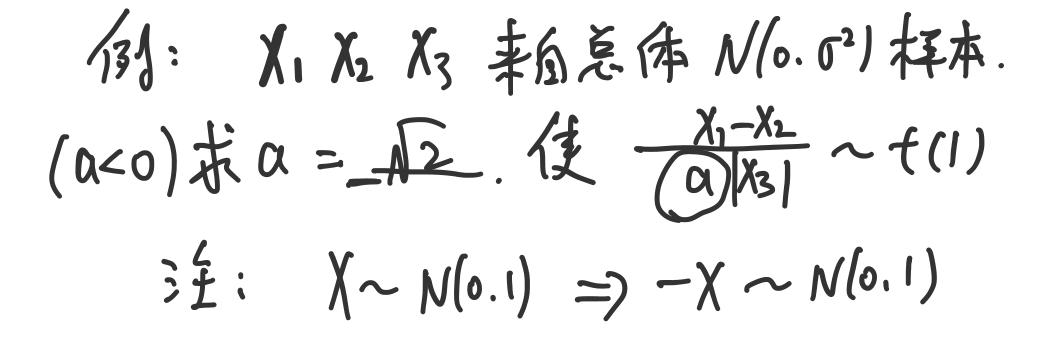 例: X₁ X₂ X₃ 来自总体 N(0.σ²) 样本.
(a<0) 求 a = -√2. 使 (X₁-X₂)/(a|X₃|) ~ t(1)
注: X ~ N(0.1) ⇒ -X ~ N(0.1)